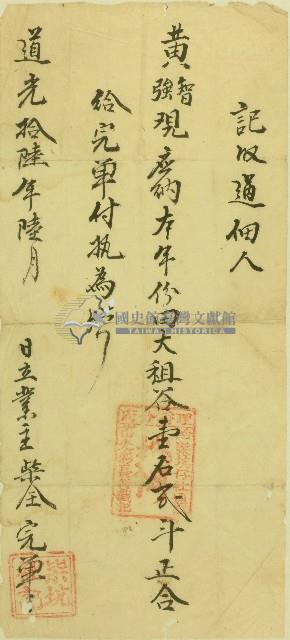 記收過佃人
黃智強現庶納本年份大租谷壹石弍斗正合
給完單付執為炤
道光拾陸年陸月 日立業主柴全完單
國史館臺灣文獻館
TAIWAN HISTORICA